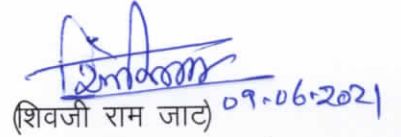 (शिवजी राम जाट) 09-06-2021